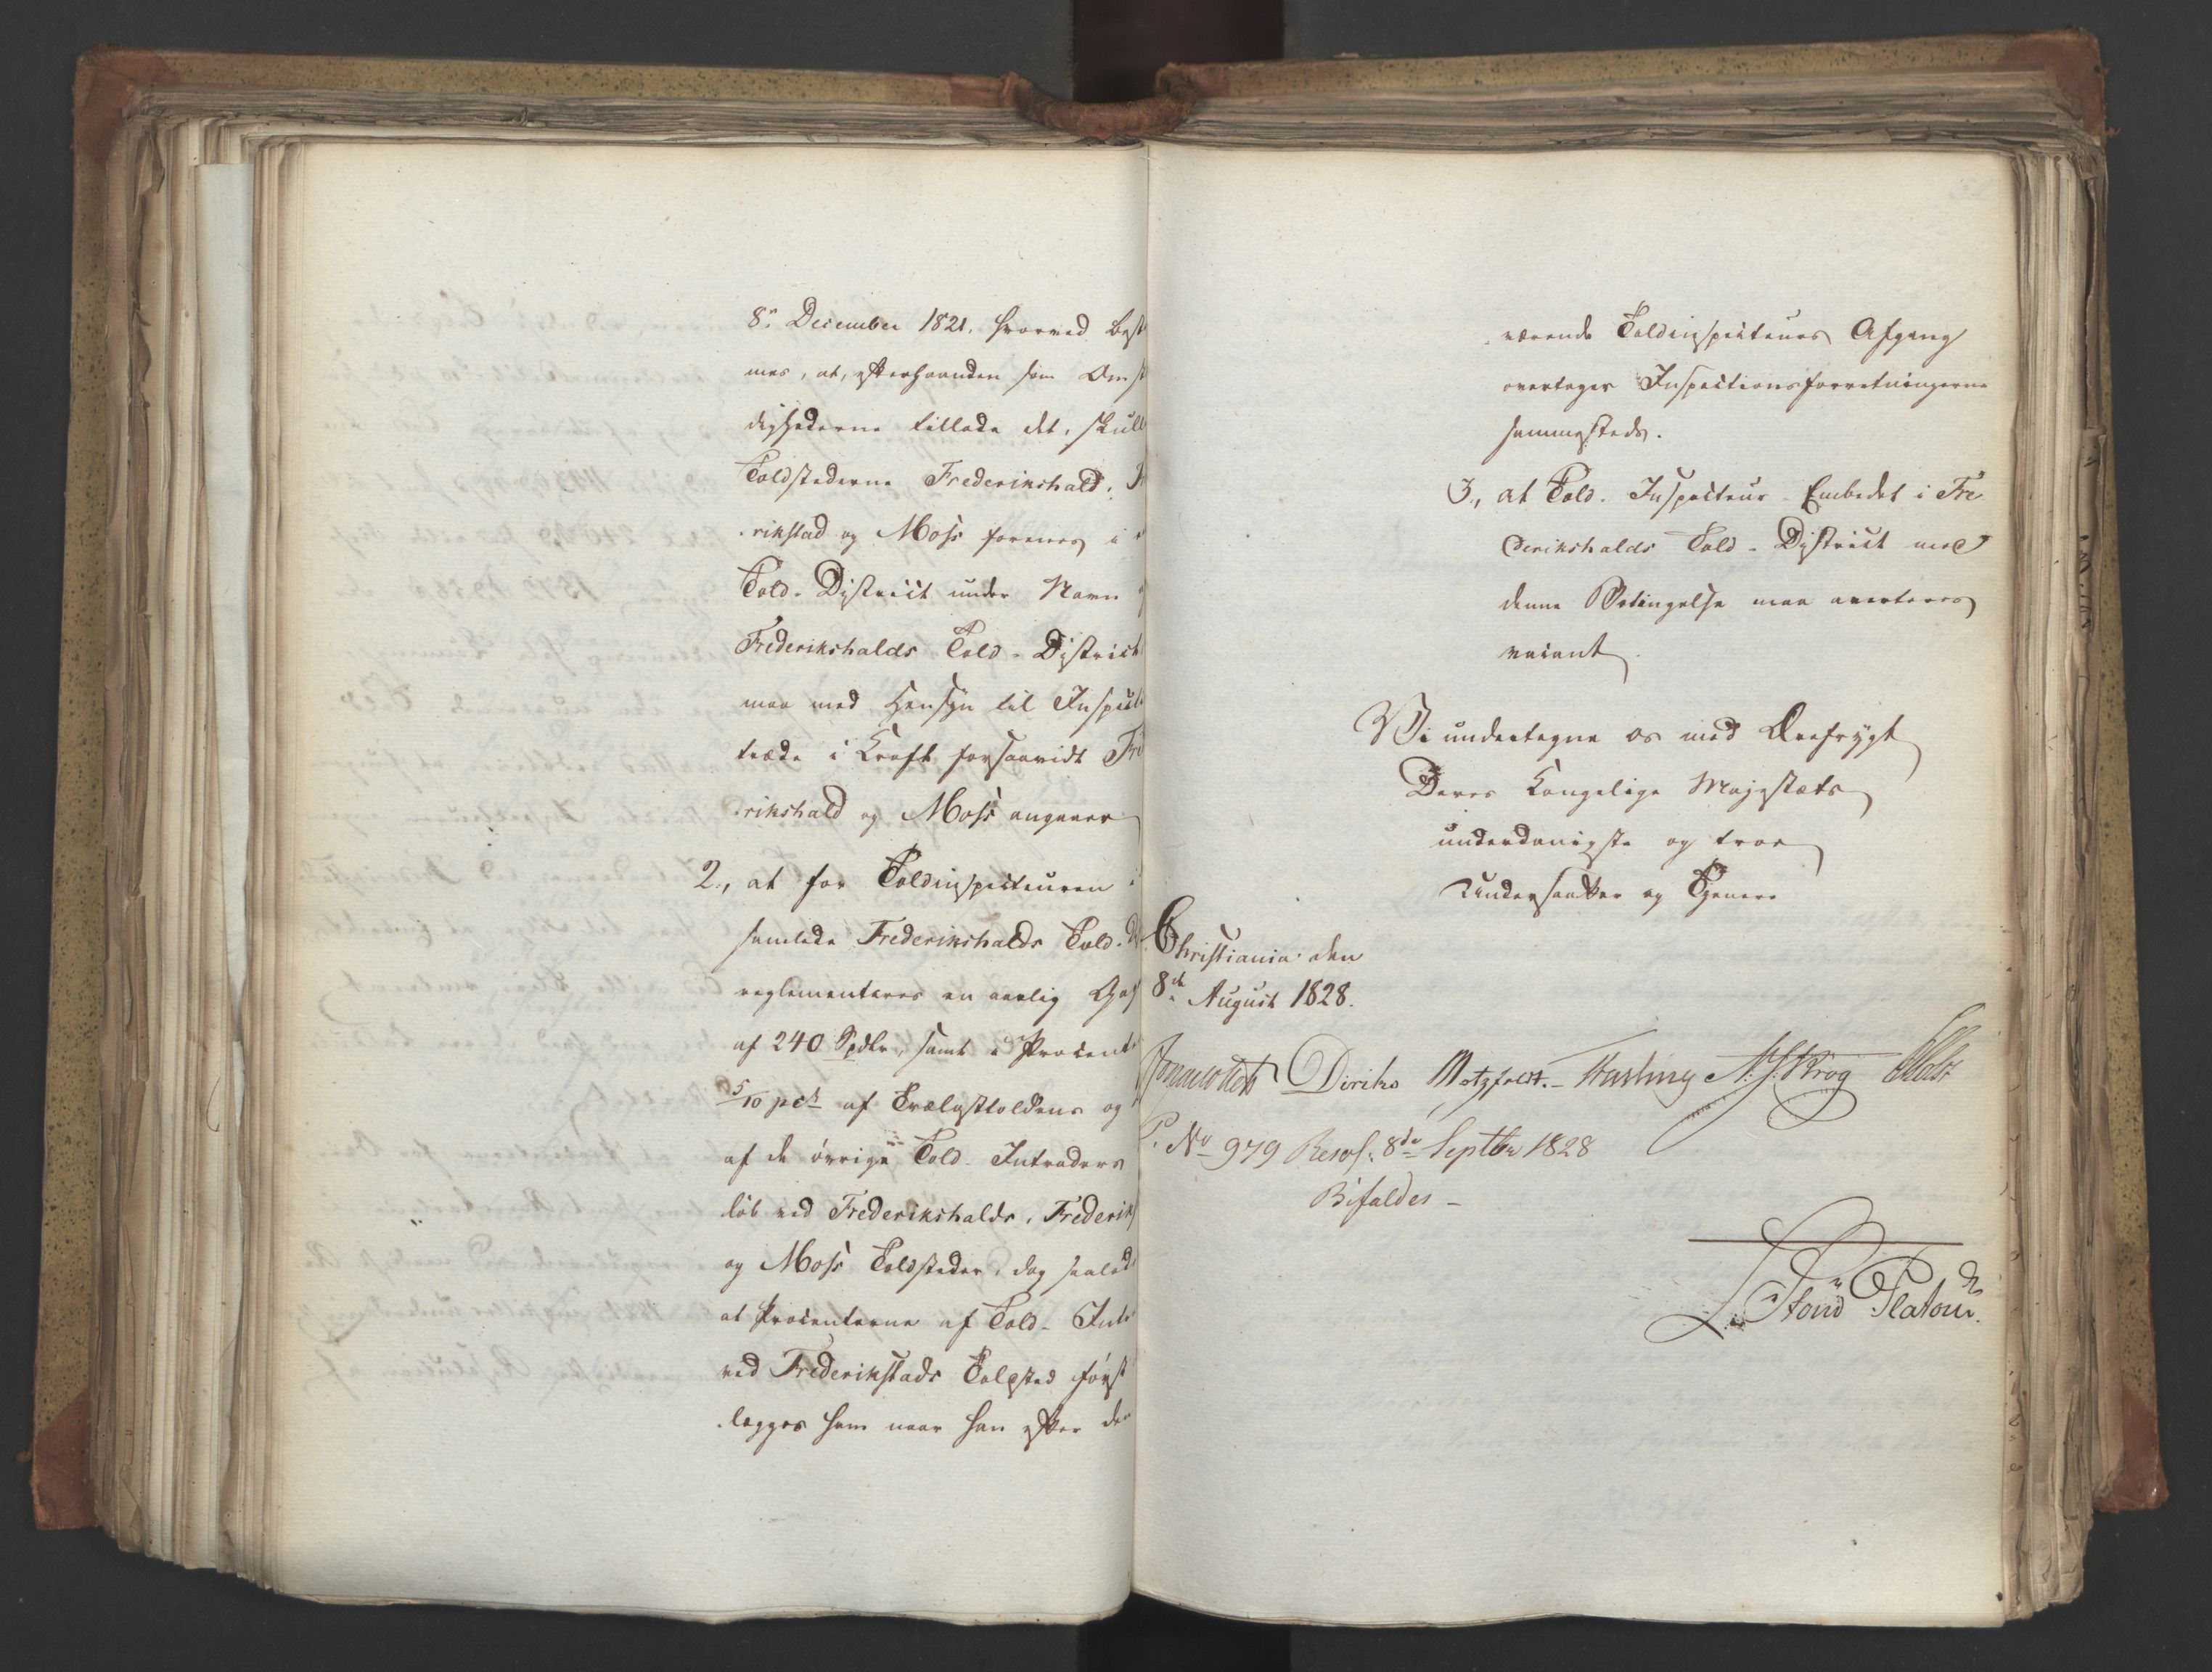 8de December 1821, hvorved best
mes, at, efterhaanden som Omst
dighederne tillade det, skull
Toldstederne Frederikshald,
rikstad og Moss forenes i
Told-District under Navn
Frederikshalds Told-District
maa med Hensyn til Inspect
træde i Kraft forsaavidt Fre
rikshald og Moss angaaer
2., at for Toldinspecteuren i
samlede Frederikshalds Told-D
reglementeres en aarlig Gag
af 240 Spdlr, samt i Procent
5/10 pct af Trælasttolden og
af de øvrige Told-Intraders
løb ved Frederikshalds, Frederiks
og Moss Toldsteder, dog saaled
at Procenterne af Told-Intr
ved Frederikstads Toldsted først
lægges ham naar han efter den
værende Toldinspecteurs Afgang
overtager Inspectionsforretningerne
sammesteds.
3., at Told-Inspecteur-Embedet i Fre
derikshalds Told-District med
denne Betingelse maa averteres
vacant.
Vi undertegne os med Ærefrygt
Deres Kongelige Majestæts
underdanigste og troe
Undersaatter og Tjenere
Christiania den
8de August 1828.
Diriks Motzfeldt. N. J. Krog Holst
P. No 979 Resol. 8de Septbr 1828
Bifaldes -
Stoud Platou